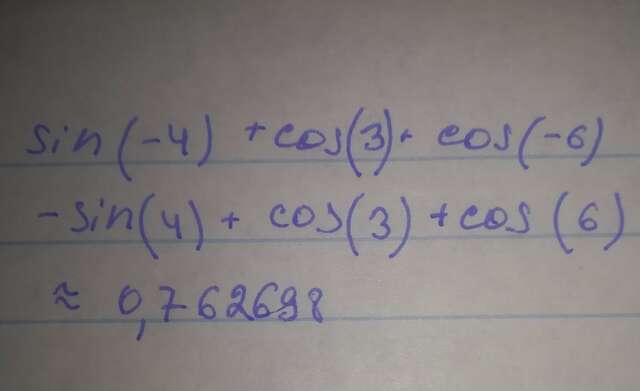 sin(-4) + cos(3)· cos(-6)
-sin(4) + cos(3) + cos(6)
≈ 0,762698